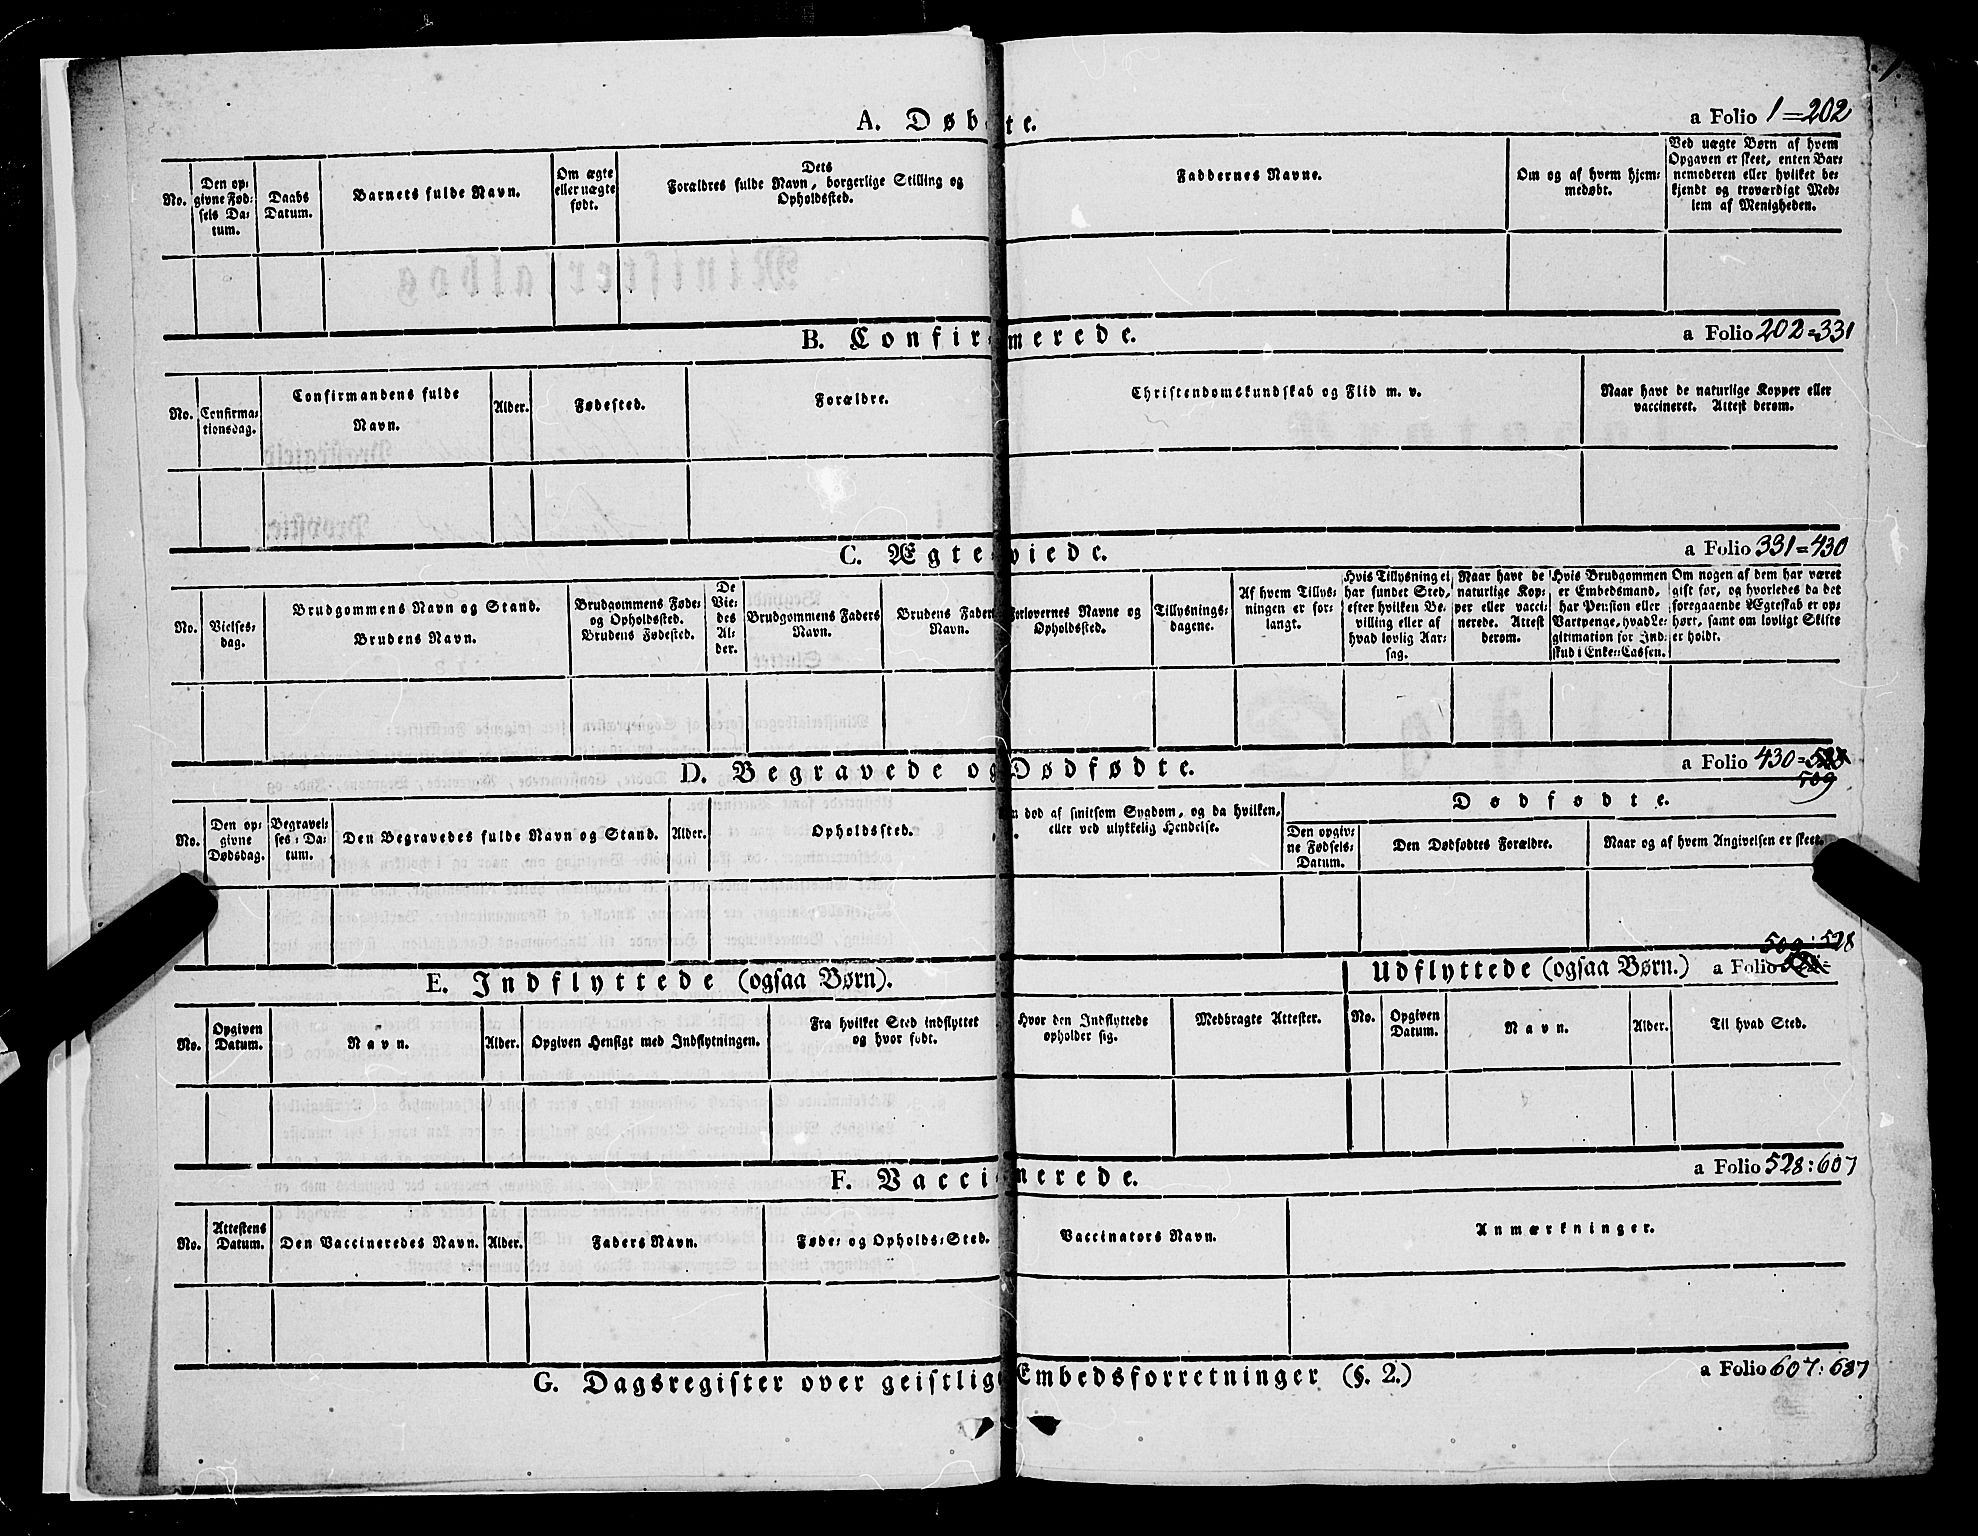 A. Døbte. a Folio 1=202
No.
Den op-
givne Fød-
sels Da-
tum.
Daabs
Datum.
Barnets fulde Navn.
Om ægte
eller uægte
født.
Dets
Forældres fulde Navn, borgerlige Stilling og
Opholdssted.
Faddernes Navne.
Om og af hvem hjem-
medøbt.
Ved uægte Børn af hvem
Opgaven er skeet, enten Bar-
nemoderen eller hvilket be-
kjendt og troværdigt Med-
lem af Menigheden.
B. Confirmerede. a Folio 202=331
No.
Confirma-
tionsdag.
Confirmandens fulde
Navn.
Alder.
Fødested.
Forældre.
Christendomskundskab og Flid m. v.
Naar havt de naturlige Kopper eller
vaccineret. Attest derom.
C. Ægteviede. a Folio 331=430
No.
Vielses-
dag.
Brudgommens Navn og Stand.
Brudens Navn.
Brudgommens Føde-
og Opholdssted.
Brudens Fødested.
De
Vie-
des
Al-
der.
Brudgommens Faders
Navn.
Brudens Faders
Navn.
Forlovernes Navne og
Opholdssted.
Tillysnings-
dagene.
Af hvem Tillys-
ningen er for-
langt.
Hvis Tillysning ei
har fundet Sted,
efter hvilken Be-
villing eller af
hvad lovlig Aar-
sag.
Naar havt de
naturlige Kop-
per eller vacci-
nerede. Attest
derom.
Hvis Brudgommen
er Embedsmand,
har Pension eller
Vartpenge, hvad Le-
gitimation for Ind-
skud i Enke-Cassen.
Om nogen af dem har været
gift før, og hvorledes da det
foregaaende Ægteskab er op-
hørt, samt om lovligt Skifte
er holdt.
D. Begravede og Dødfødte. a Folio 430=528
509
No.
Den op-
givne
Dødsdag.
Begravel-
ses-Da-
tum.
Den Begravedes fulde Navn og Stand.
Alder.
Opholdssted.
død af smitsom Sygdom, og da hvilken,
eller ved ulykkelig Hendelse.
Dødfødte.
Den opgiv-
ne Fødsels-
Datum.
Den Dødfødtes Forældre.
Naar og af hvem Angivelsen er skeet.
509:528
E. Indflyttede (ogsaa Børn). Udflyttede (ogsaa Børn.) a Folio
No.
Opgiven
Datum.
Navn.
Alder.
Opgiven Hensigt med Indflytningen.
Fra hvilket Sted indflyttet
og hvor født.
Hvor den Indflyttede
opholder sig.
Medbragte Attester.
No.
Opgiven
Datum.
Navn.
Alder.
Til hvad Sted.
F. Vaccinerede. a Folio 528:607
No.
Attestens
Datum.
Den Vaccineredes Navn.
Alder.
Faders Navn.
Føde- og Opholds-Sted.
Vaccinators Navn.
Anmærkninger.
G. Dagsregister over geistlige Embedsforretninger (§. 2.) a Folio 607:687